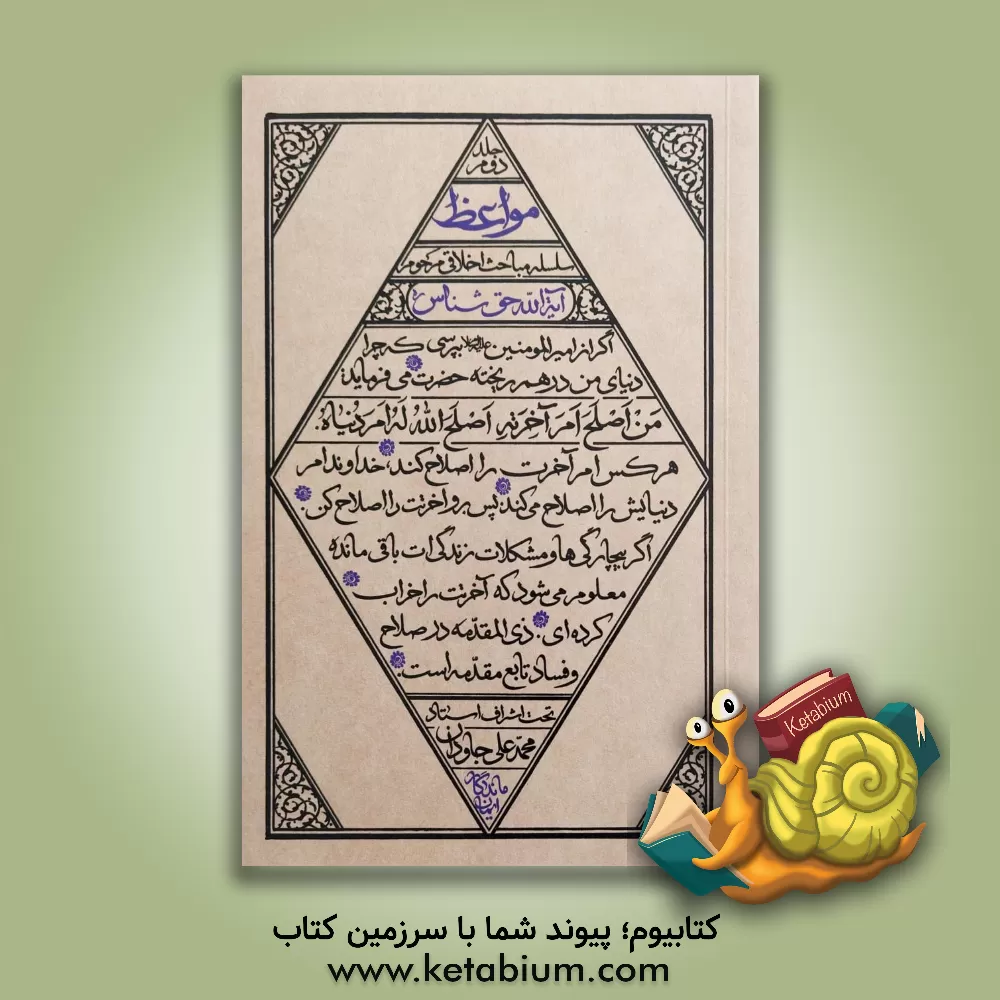 جلد
دوم
مواعظ
سلسله مباحث اخلاقی مرحوم
آیة الله حق شناس ره
اگر از امیرالمومنین علیه‌السلام بپرسی که چرا
دنیای من درهم ریخته حضرت می فرماید:
مَن اَصلَحَ اَمرَ آخِرَتِهِ اَصلَحَ اللهُ لَهُ اَمرَ دُنیاهُ.
هر کس امر آخرت را اصلاح کند، خداوند امر
دنیایش را اصلاح می‌کند؛ پس برو آخرتت را اصلاح کن.
اگر بیچارگی ها و مشکلات زندگی ات باقی مانده
معلوم می شود که آخرتت را خراب
کرده ای. ذی المقدّمه در صلاح
و فساد تابع مقدّمه است.
تحت اشراف استاد
محمّد علی جاودان
ماندگار
ایمان
Ketabium
کتابیوم؛ پیوند شما با سرزمین کتاب
www.ketabium.com